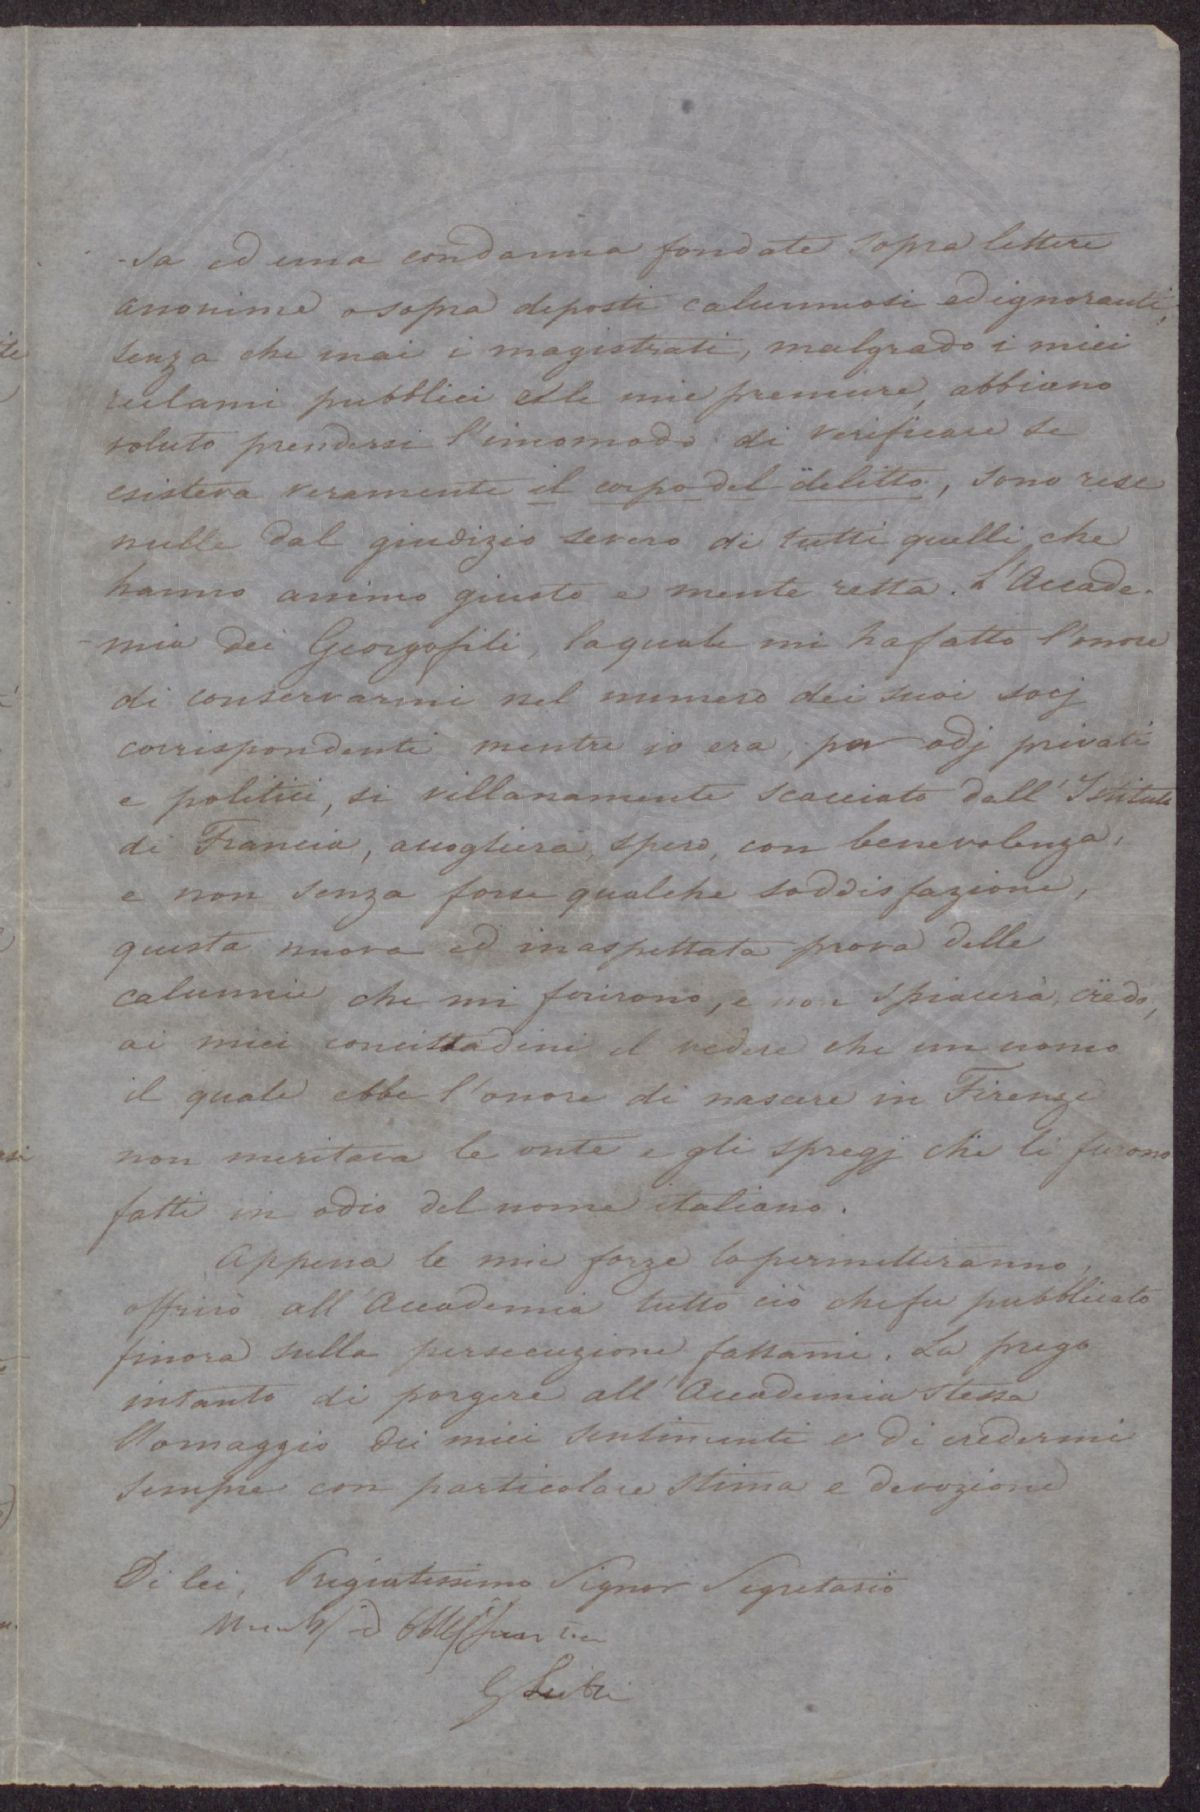 -sa ed una condanna fondate sopra lettere
anonime o sopra deposti calunniosi ed ignoranti,
senza che mai i magistrati, malgrado i miei
reclami pubblici e le mie premure, abbiano
voluto prendersi l'incomodo di verificare se
esisteva veramente il corpo del delitto, sono rese
nulle dal giudizio severo di tutti quelli che
hanno animo giusto e mente retta. L'Accade-
-mia dei Georgofili, la quale mi ha fatto l'onore
di conservarmi nel numero dei suoi socj
corrispondenti mentre io era, per odj privati
e politici, sì villanamente scacciato dall'Istituto
di Francia, accoglierà, spero, con benevolenza,
e non senza forse qualche soddisfazione,
questa nuova ed inaspettata prova delle
calunnie che mi ferirono, e non spiacerà, credo,
ai miei concittadini il vedere che un uomo
il quale ebbe l'onore di nascere in Firenze
non meritava le onte e gli spregj che li furono
fatti in odio del nome italiano.
Appena le mie forze lo permetteranno,
offrirò all'Accademia tutto ciò che fu pubblicato
finora sulla persecuzione fattami. La prego
intanto di porgere all'Accademia stessa
l'omaggio dei miei sentimenti e di credermi
sempre con particolare stima e devozione
Di lei, Pregiatissimo Signor Segretario
G Libri
PVBLIC